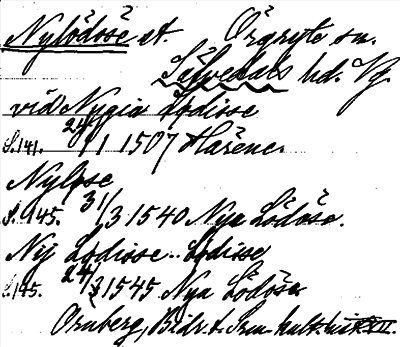 Nylödose st. Örgryte sn.
Säfvedals hd. Vg.
vid Nygia Lodisse
S. 141. 24/1 1507 Hafene.
Nylose
S. 145. 31/3 1540 Nya Lödose.
Nij Lodisse.. Lodisse
S. 145. 24/3 1545 Nya Lödöse
Ornberg, Bidr. t. Sen. kult. hist. XII.